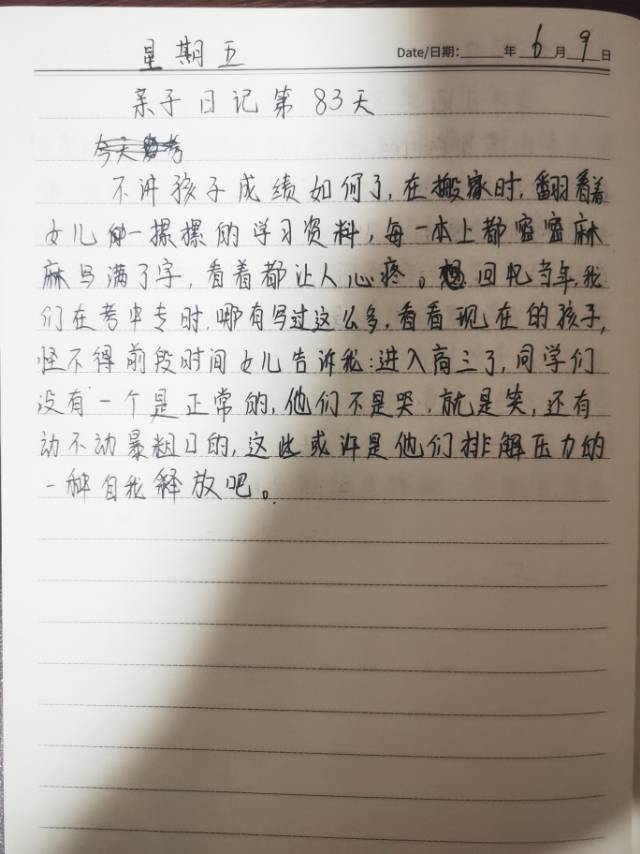 星期五 Date/日期: 年 6 月 9 日
亲子日记第83天
今天 考
不讲孩子成绩如何了,在搬家时,翻看着
女儿一摞摞的学习资料,每一本上都密密麻
麻写满了字,看着都让人心疼。回忆当年我
们在考中专时,哪有写过这么多,看看现在的孩子,
怪不得前段时间女儿告诉我:进入高三了,同学们
没有一个是正常的,他们不是哭,就是笑,还有
动不动暴粗口的,这些或许是他们排解压力的
一种自我释放吧。